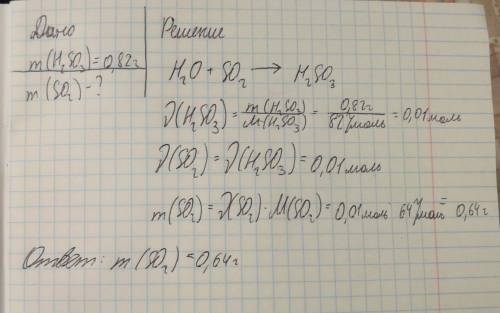 Дано
m(H₂SO₃)=0,82г
m(SO₂)-?
Решение
H₂O + SO₂ → H₂SO₃
ν(H₂SO₃) = m(H₂SO₃)/M(H₂SO₃) = 0,82г/82г/моль = 0,01моль
ν(SO₂) = ν(H₂SO₃) = 0,01моль
m(SO₂) = ν(SO₂)·M(SO₂) = 0,01моль·64г/моль = 0,64г
Ответ: m(SO₂) = 0,64г